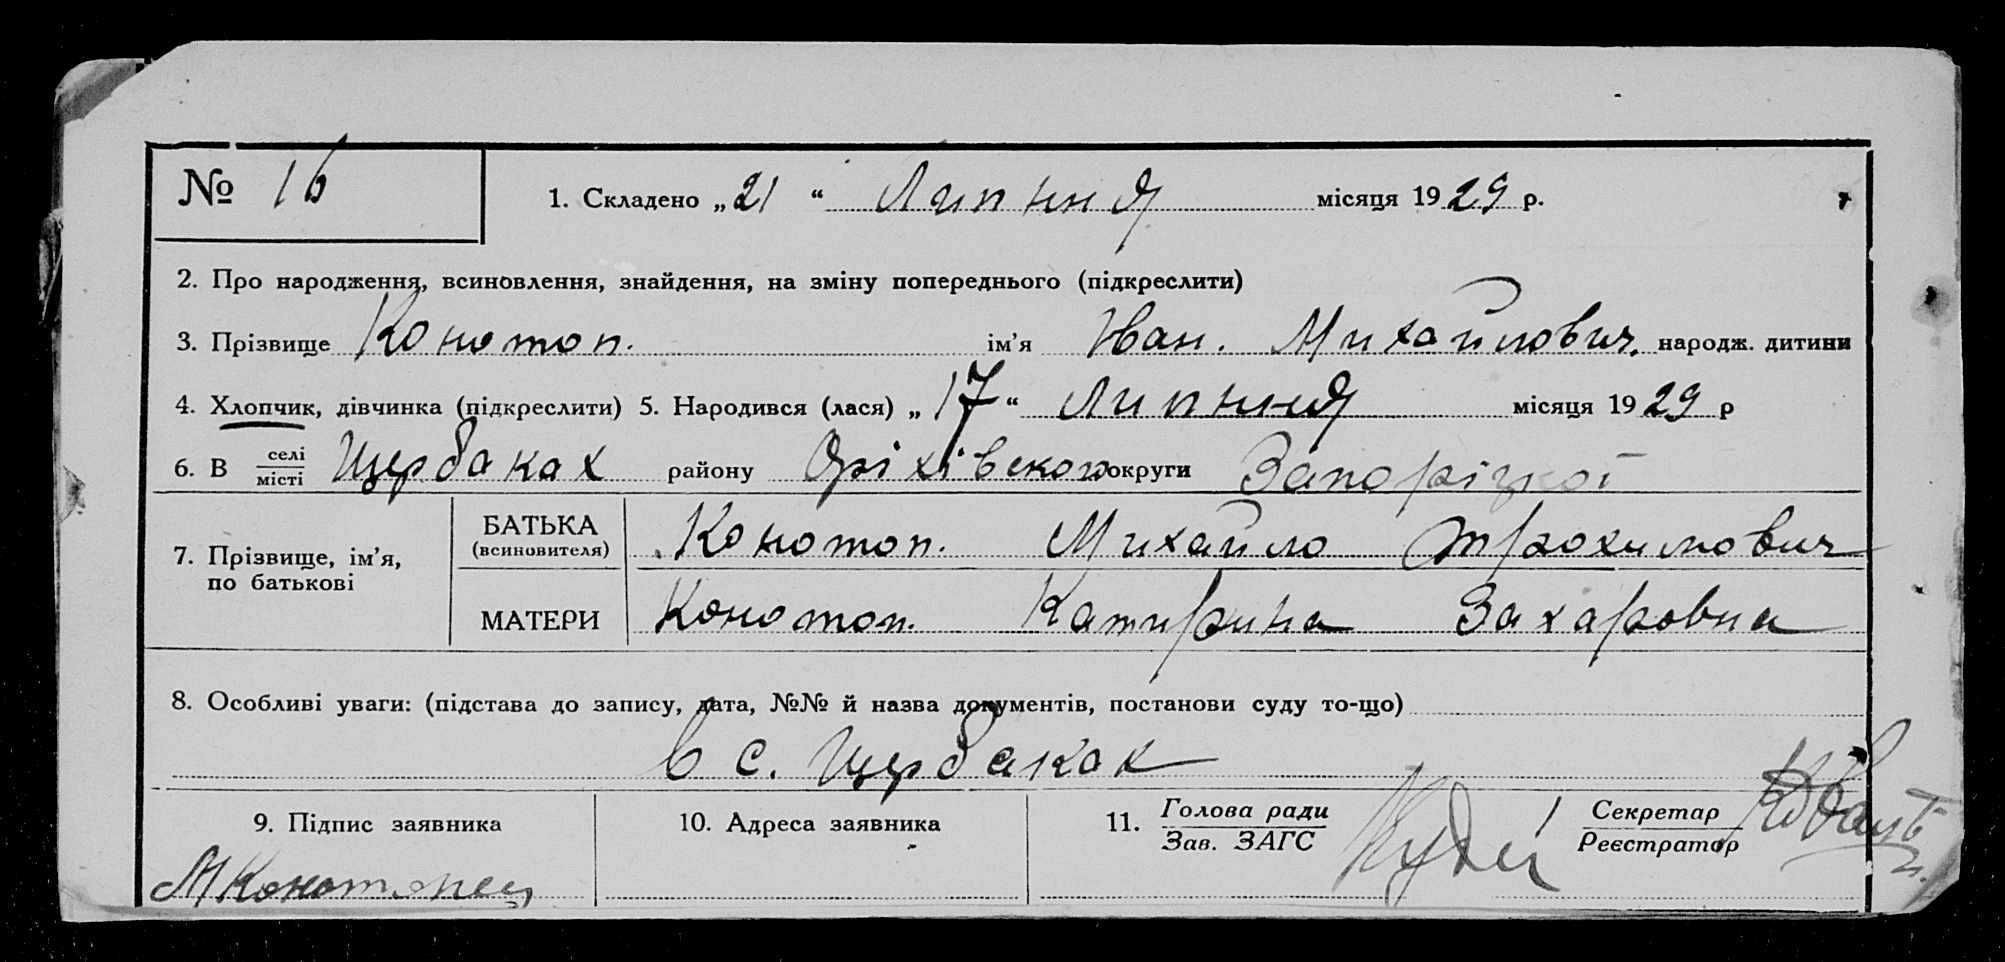 № 16 1. Складено „21“ Липня місяця 1929 р.
2. Про народження, всиновлення, знайдення, на зміну попереднього (підкреслити)
3. Прізвище Конотоп. ім’я Іван. Михайлович. народж. дитини
4. Хлопчик, дівчинка (підкреслити) 5. Народився (лася) „17“ Липння місяця 1929 р
6. В селі Щербаках району Оріхівського округи Запоріцкої
місті
7. Прізвище, ім’я, по батькові
БАТЬКА (всиновителя) Конотоп. Михайло Трохимович
МАТЕРИ Конотоп. Катирина Захаровна
8. Особливі уваги: (підстава до запису, дата, №№ й назва документів, постанови суду то-що)
в с. Щербаках
9. Підпис заявника 10. Адреса заявника 11. Голова ради Секретар
Зав. ЗАГС Реєстратор
МКонотопец